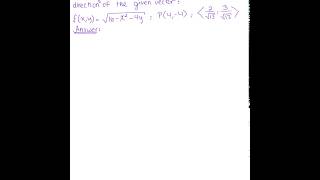 direction of the given vector:
f(x,y) = √(16-x²-4y) ; P(4,-4) ; ⟨2/√13, 3/√13⟩
Answer: